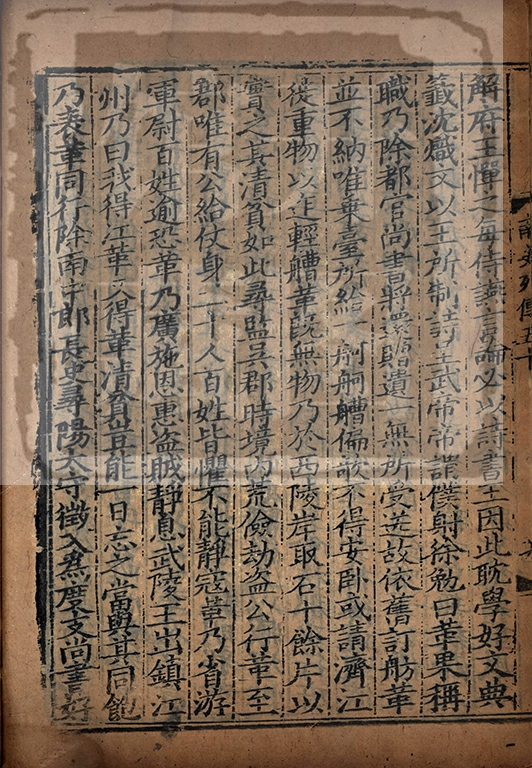 解府王憚之每侍讌言論必以詩書王因此耽學好文典
籤沈熾文以王所制詩呈武帝帝謂僕射徐勉曰革果稱
職乃除都官尚書將還贈遺一無所受送故依舊訂舫革
並不納唯乘臺所給一舸舸艚偏欹不得安臥或請濟江
徙重物以迮輕艚革既無物乃於西陵岸取石十餘片以
實之其清貧如此尋監吳郡時境內荒儉劫盜公行革至
郡唯有公給仗身二十人百姓皆懼不能靜寇革乃省游
軍尉百姓逾恐革乃廣施恩惠盜賊靜息武陵王出鎮江
州乃曰我得江革又得革清貧豈能一日忘之當與其同飽
乃表革同行除南中郎長史尋陽太守徵入為度支尚書好